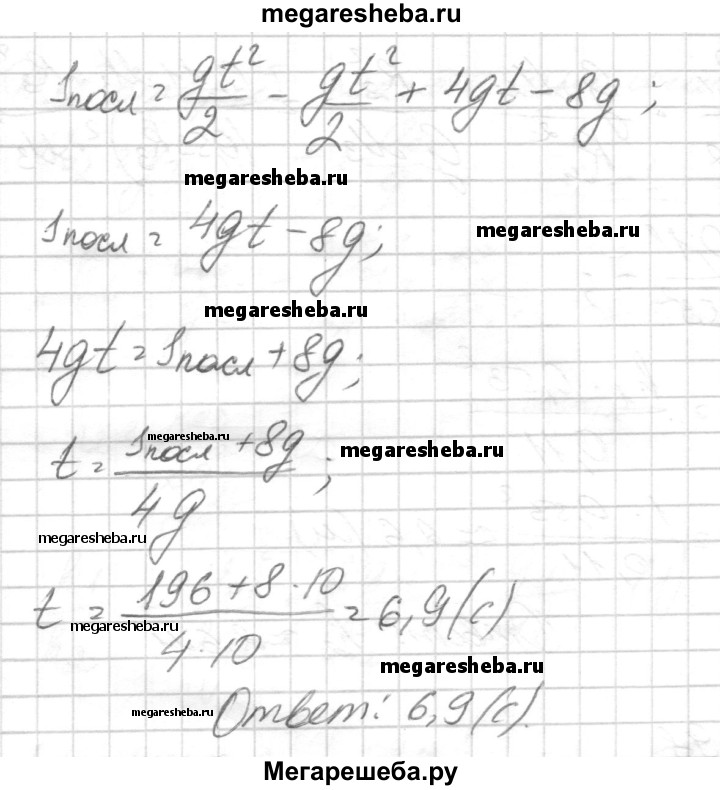 megaresheba.ru
Sпосл = gt²/2 - gt²/2 + 4gt - 8g ;
megaresheba.ru
Sпосл = 4gt - 8g;
megaresheba.ru
megaresheba.ru
4gt = Sпосл + 8g;
megaresheba.ru
t = Sпосл + 8g / 4g ;
megaresheba.ru
megaresheba.ru
t = 196 + 8 · 10 / 4 · 10 = 6,9 (с)
megaresheba.ru
megaresheba.ru
megaresheba.ru
Ответ: 6,9 (с).
Мегарешеба.ру